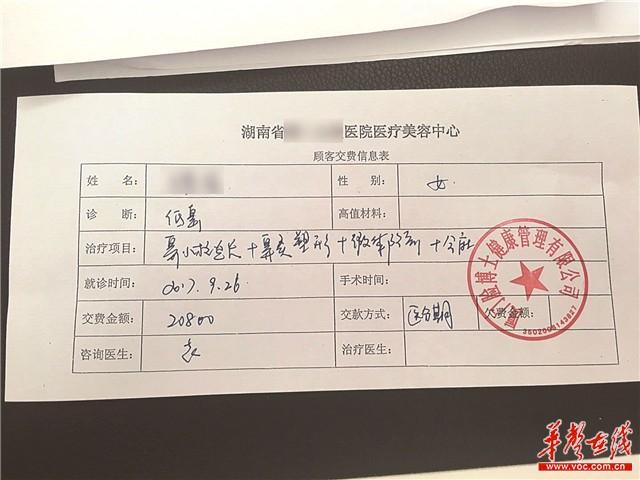 湖南省 医院医疗美容中心
顾客交费信息表
姓 名: 性 别: 女
诊 断: 低鼻 高值材料:
治疗项目: 鼻小柱延长+鼻头塑形+
就诊时间: 2017.9.26 手术时间:
交费金额: 20800 交款方式: 医分期 欠费金额:
咨询医生: 治疗医生:
厦门脸博士健康管理有限公司
3502006143827
华声在线
www.voc.com.cn